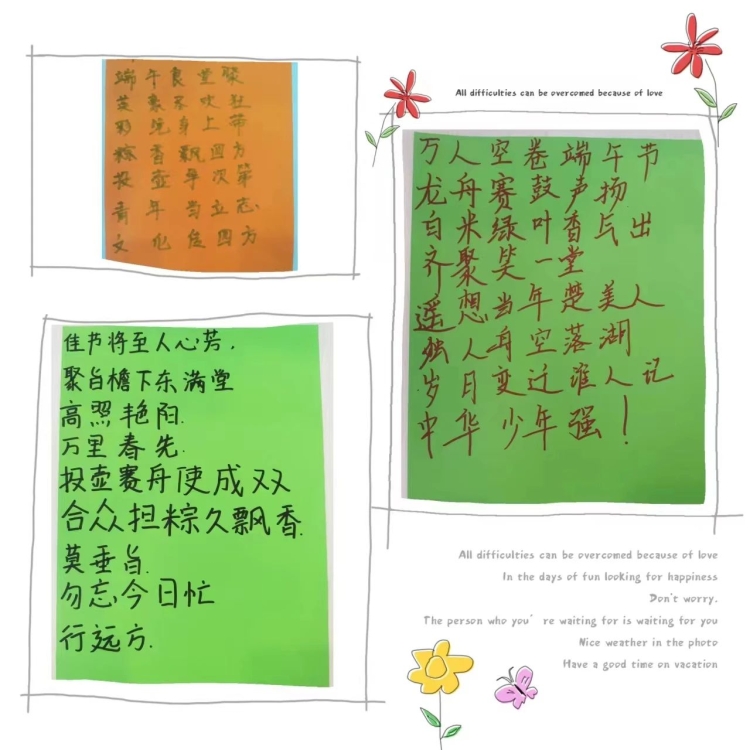 端午良堂聚
彩绳身上带
粽香飘四方
投壶争次第
青年当立志
文化危四方
All difficulties can be overcomed because of love
万人空巷端午节
龙舟赛鼓声扬
白米绿叶香气出
齐聚笑一堂
遥想当年楚美人
独人舟空落湖
岁月变迁谁人记
中华少年强！
佳节将至人心芳，
聚旨檐下东满堂
高照艳阳.
万里春先.
投壶赛舟使成双
合众担粽久飘香.
莫垂旨.
勿忘今日忙
行远方.
All difficulties can be overcomed because of love
In the days of fun looking for happiness
Don't worry.
The person who you're waiting for is waiting for you
Nice weather in the photo
Have a good time on vacation